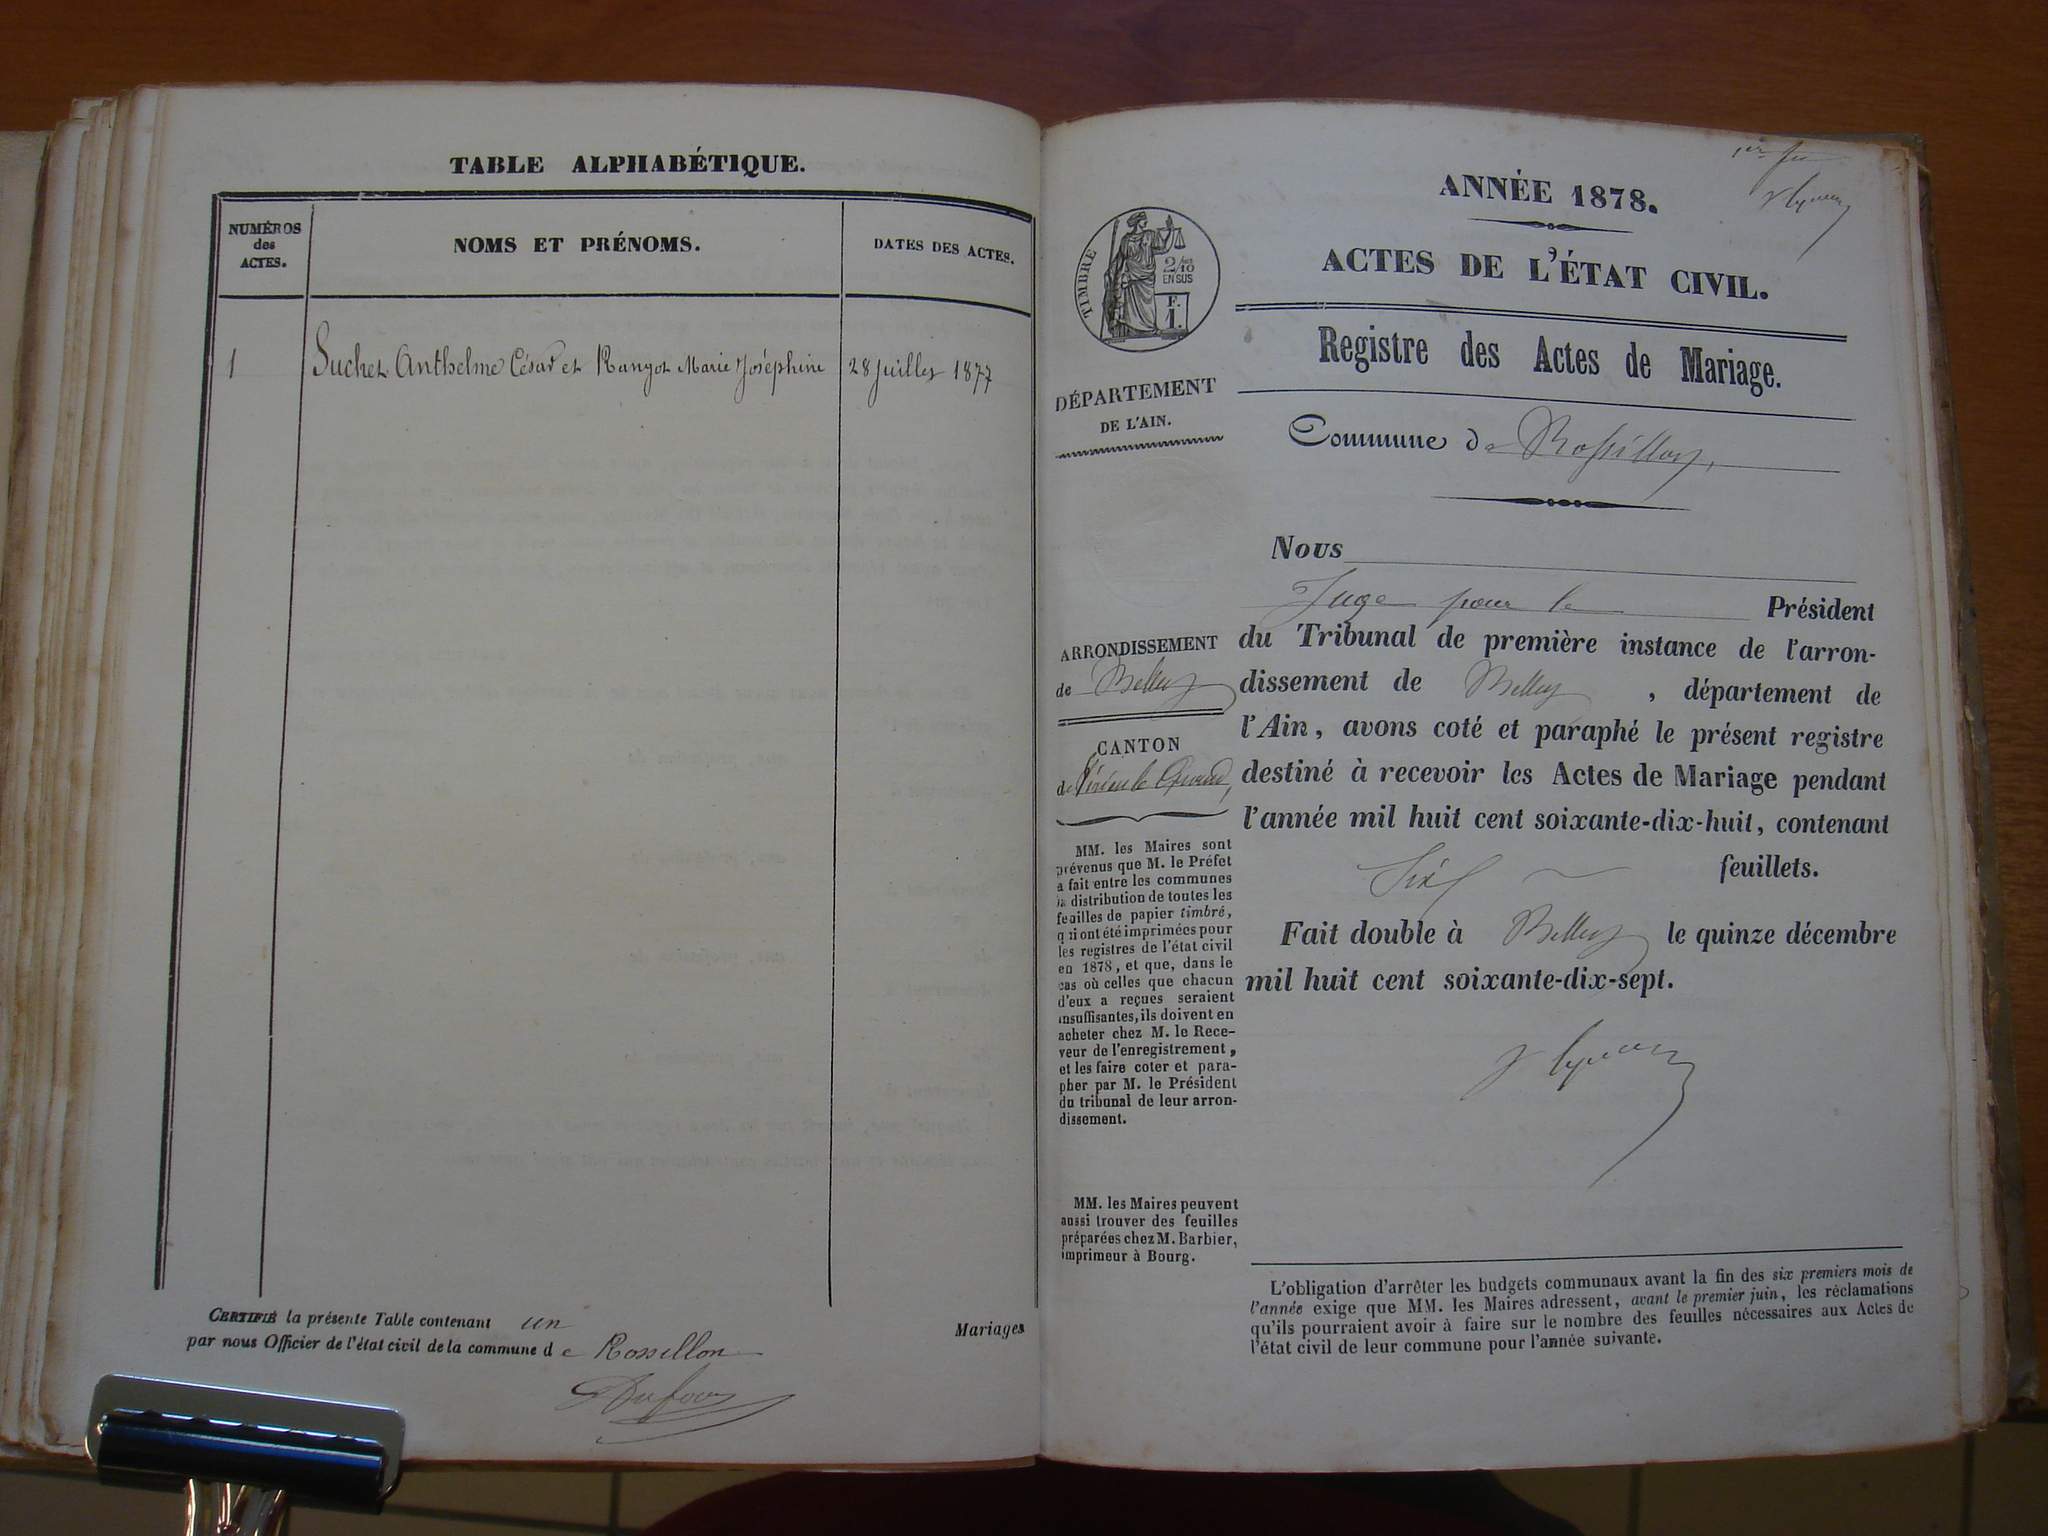 TABLE ALPHABÉTIQUE.
NUMÉROS
des
ACTES.
NOMS ET PRÉNOMS.
DATES DES ACTES.
1 Suchet Anthelme César et Rangot Marie Joséphine 28 Juillet 1877
CERTIFIÉ la présente Table contenant un Mariages
par nous Officier de l'état civil de la commune de Rossillon
Dufour
1er
ANNÉE 1878.
ACTES DE L'ÉTAT CIVIL.
TIMBRE
2/10
EN SUS
F.
1.
Registre des Actes de Mariage.
DÉPARTEMENT
DE L'AIN.
Commune de Rossillon,
Nous
Juge pour le Président
du Tribunal de première instance de l'arron-
dissement de Belley, département de
l'Ain, avons coté et paraphé le présent registre
destiné à recevoir les Actes de Mariage pendant
l'année mil huit cent soixante-dix-huit, contenant
Six feuillets.
Fait double à Belley le quinze décembre
mil huit cent soixante-dix-sept.
ARRONDISSEMENT
de Belley
CANTON
de Virieu le Grand,
MM. les Maires sont
prévenus que M. le Préfet
a fait entre les communes
la distribution de toutes les
feuilles de papier timbré,
qui ont été imprimées pour
les registres de l'état civil
en 1878, et que, dans le
cas où celles que chacun
d'eux a reçues seraient
insuffisantes, ils doivent en
acheter chez M. le Rece-
veur de l'enregistrement,
et les faire coter et para-
pher par M. le Président
du tribunal de leur arron-
dissement.
MM. les Maires peuvent
aussi trouver des feuilles
préparées chez M. Barbier,
imprimeur à Bourg.
L'obligation d'arrêter les budgets communaux avant la fin des six premiers mois de
l'année exige que MM. les Maires adressent, avant le premier juin, les réclamations
qu'ils pourraient avoir à faire sur le nombre des feuilles nécessaires aux Actes de
l'état civil de leur commune pour l'année suivante.